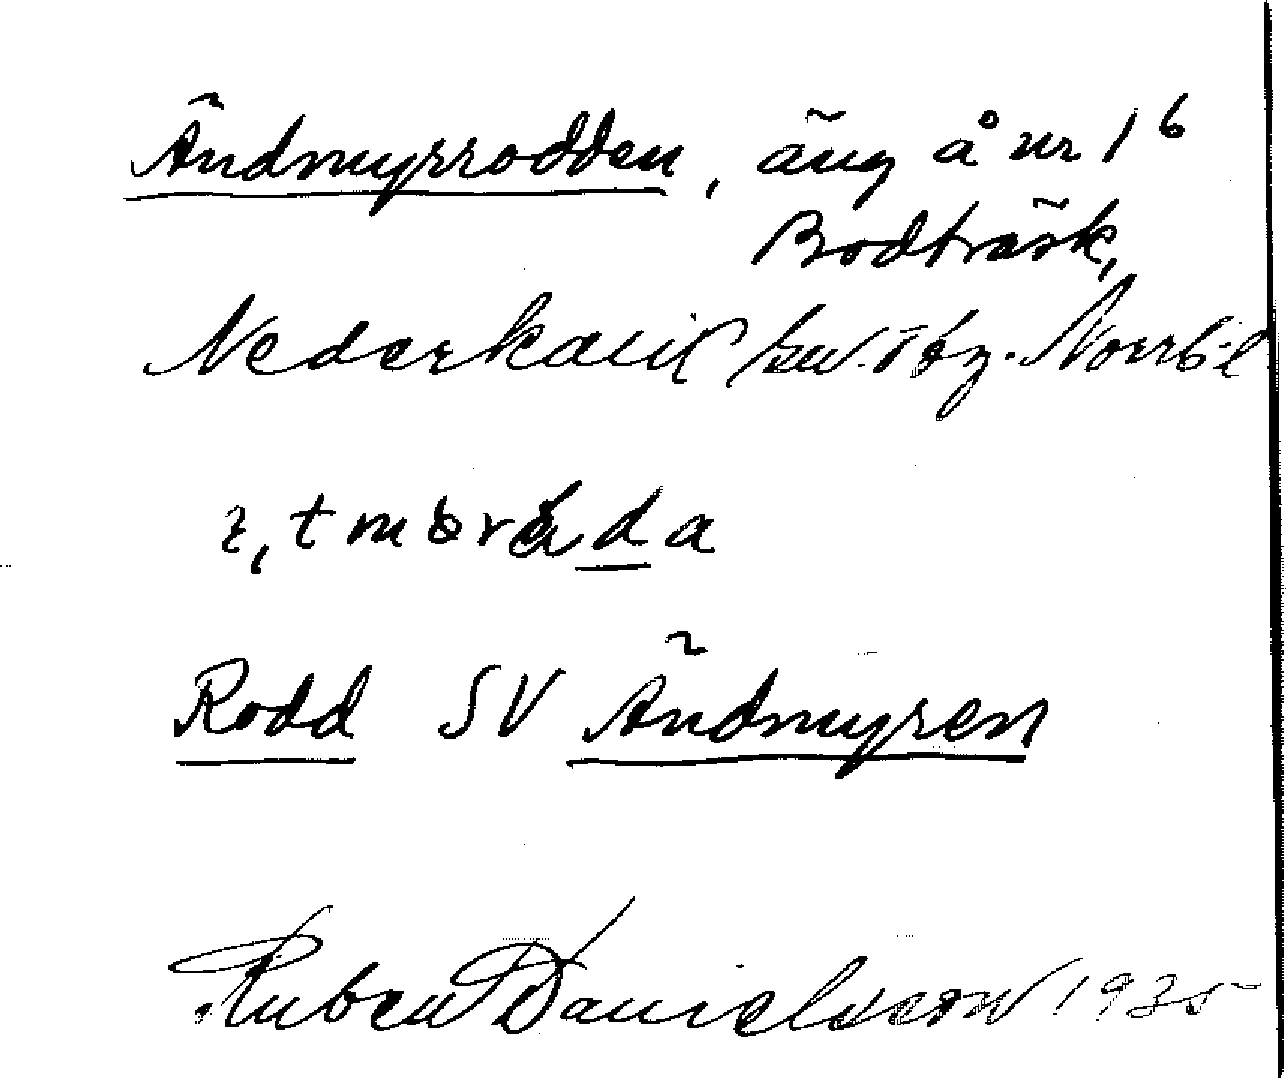 Ändmyrrodden, äng å nr 1⁶
Bodträsk,
Nederkalix sn. Tbg. Norrb. l
Rodd SV Ändmyren
Ruben Danielsson 1935